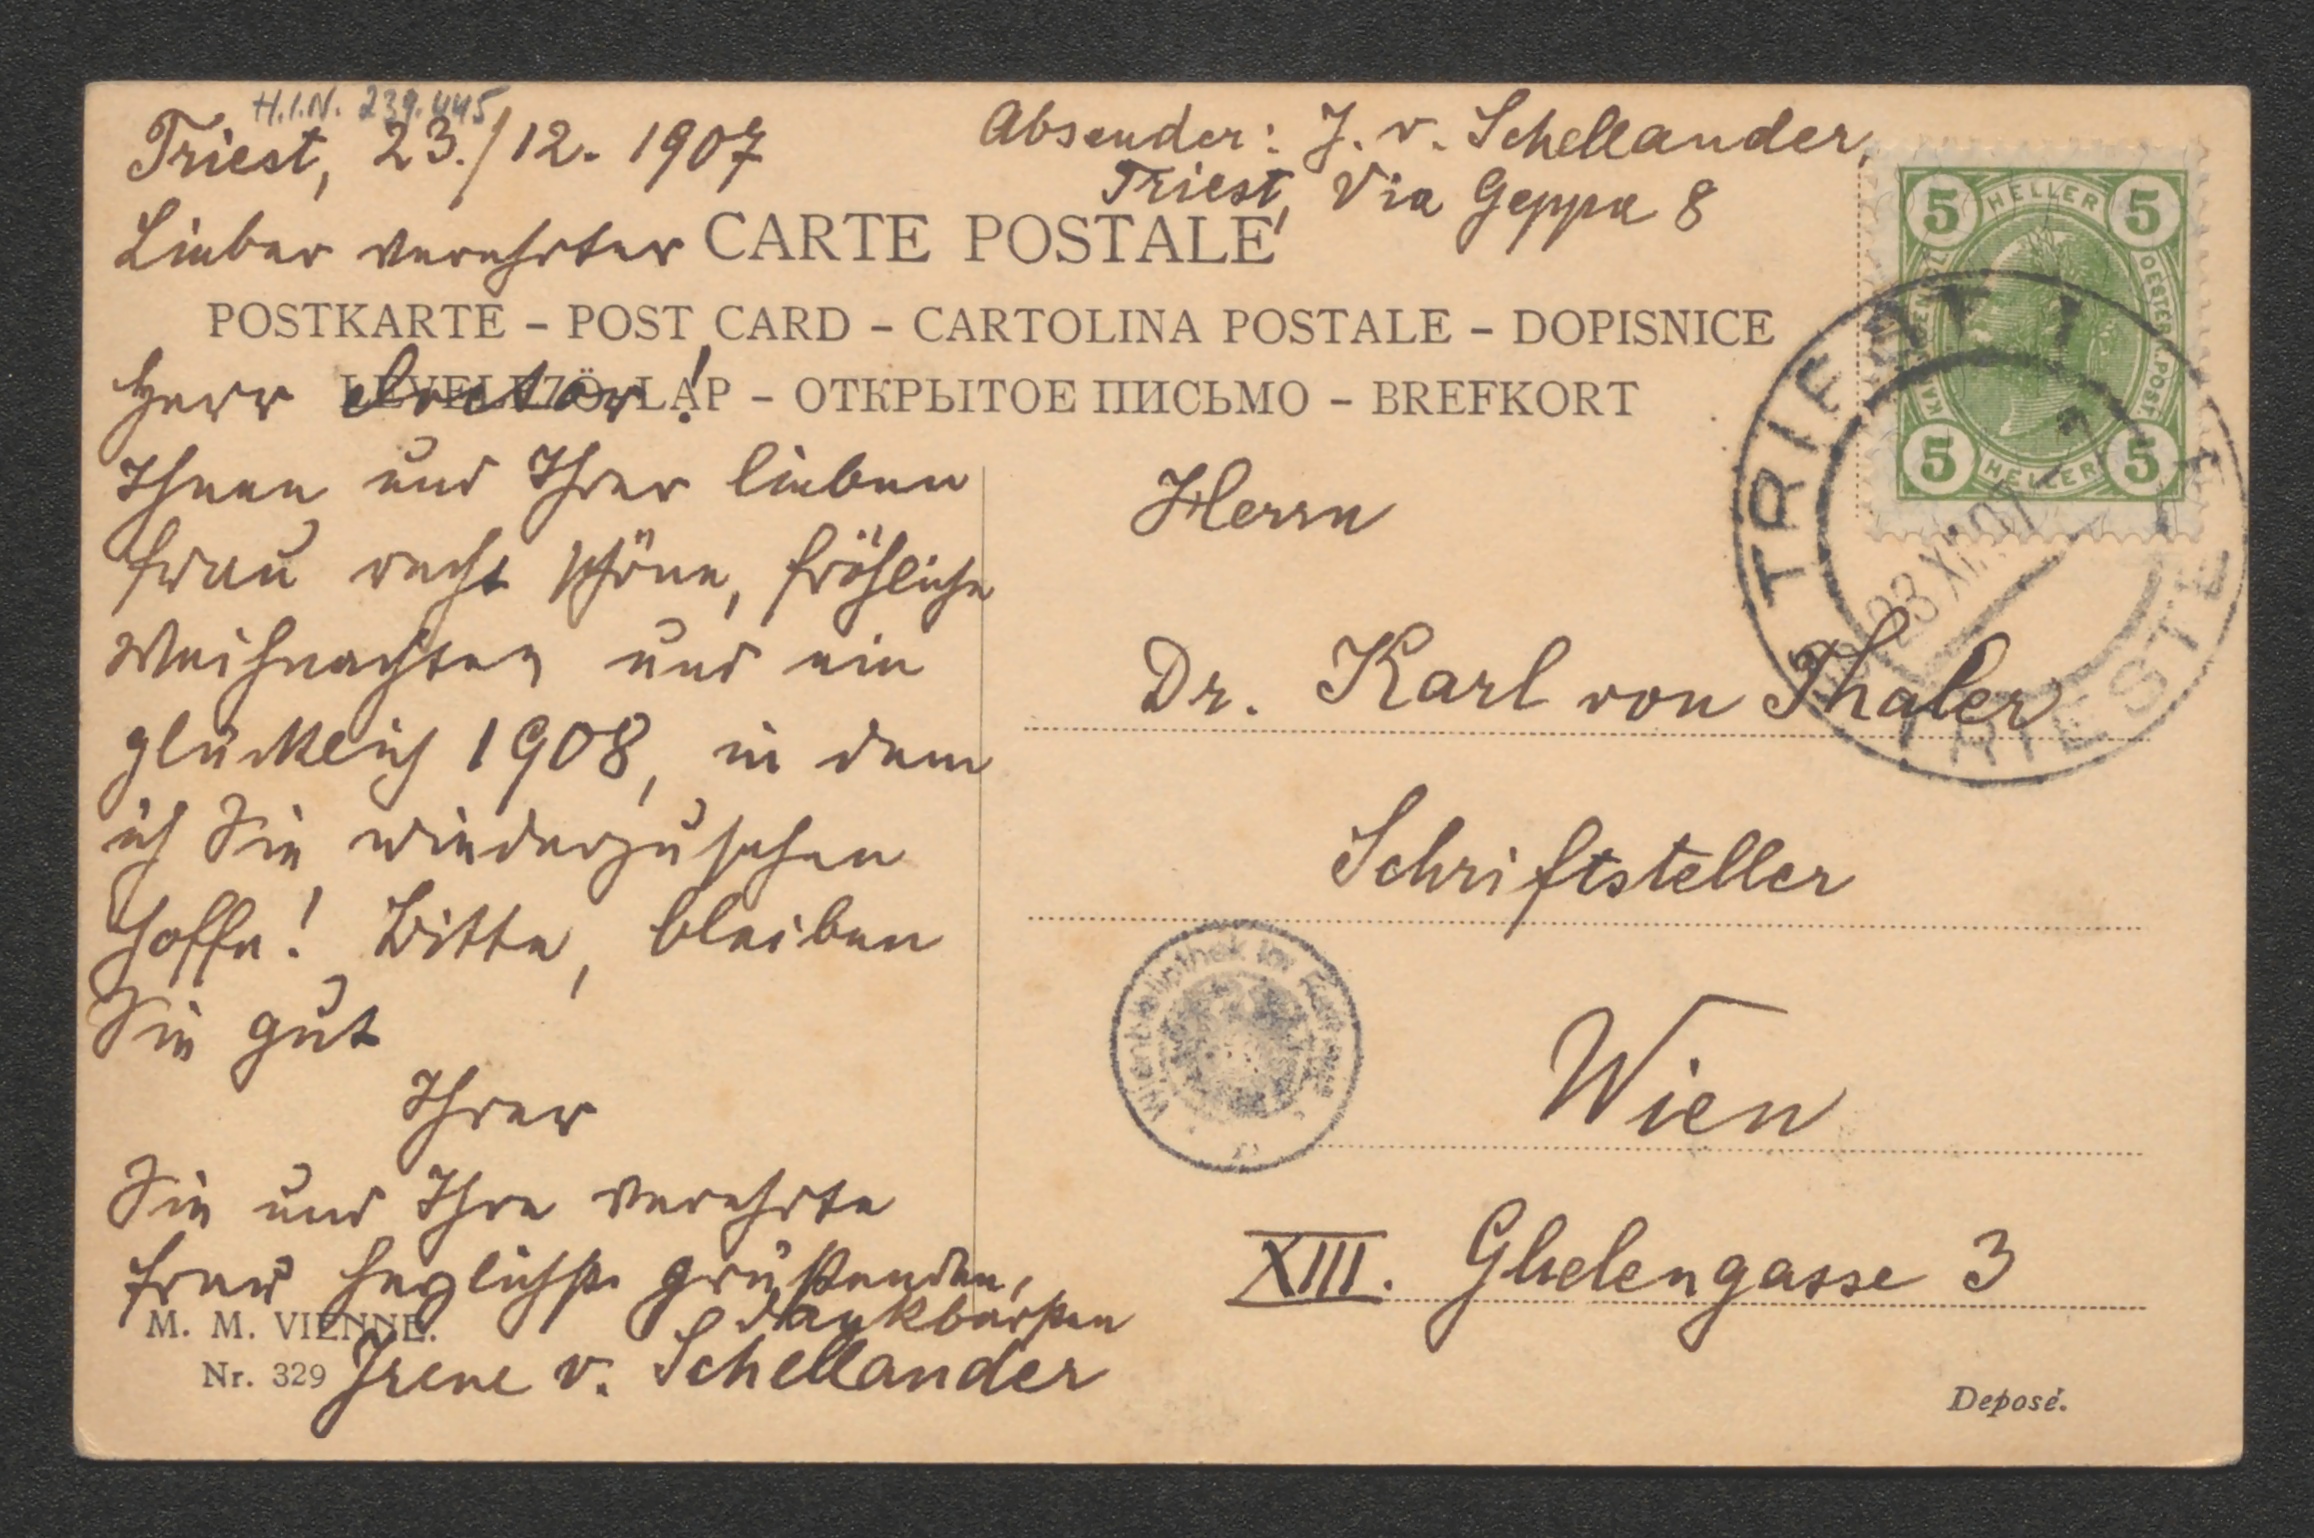 H.I.N. 239.445
Triest, 23./12. 1907
Absender: J. v. Schellander,
Triest, Via Geppa 8
Lieber verehrter
CARTE POSTALE
POSTKARTE – POST CARD – CARTOLINA POSTALE – DOPISNICE
LEVELEZÖ-LAP – ОТКРЫТОЕ ПИСЬМО – BREFKORT
Herr Doctor!
Ihnen und Ihrer lieben
Frau recht schöne, fröhliche
Weihnachten und ein
glücklich 1908, in dem
ich Sie wiederzusehen
hoffe! Bitte, bleiben
Sie gut
Ihrer
Sie und Ihre verehrte
Frau herzlichst grüßenden,
dankbarsten
Irene v. Schellander
M. M. VIENNE.
Nr. 329
5 HELLER 5
5 HELLER 5
TRIEST 1
TRIESTE
23 XII 07
Herrn
Dr. Karl von Thaler
Schriftsteller
Wienbibliothek im Rathaus
Wien
XIII. Ghelengasse 3
Deposé.